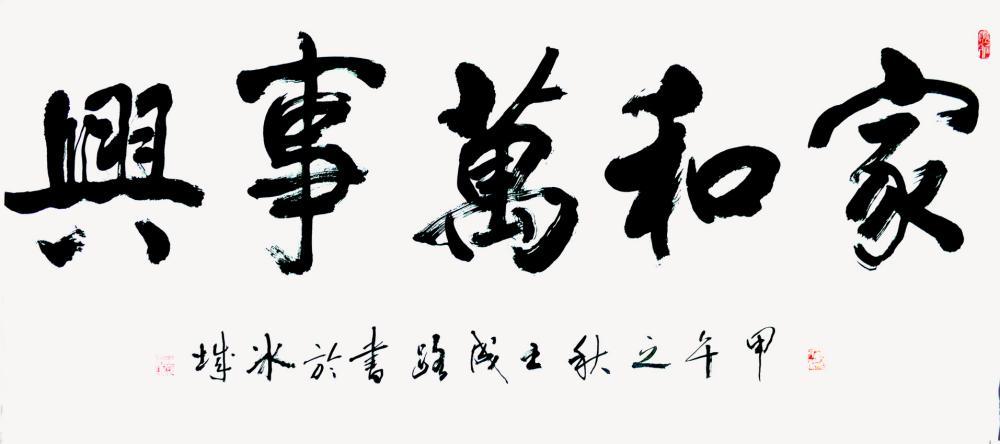 家和萬事興
甲午之秋王成路書於冰城